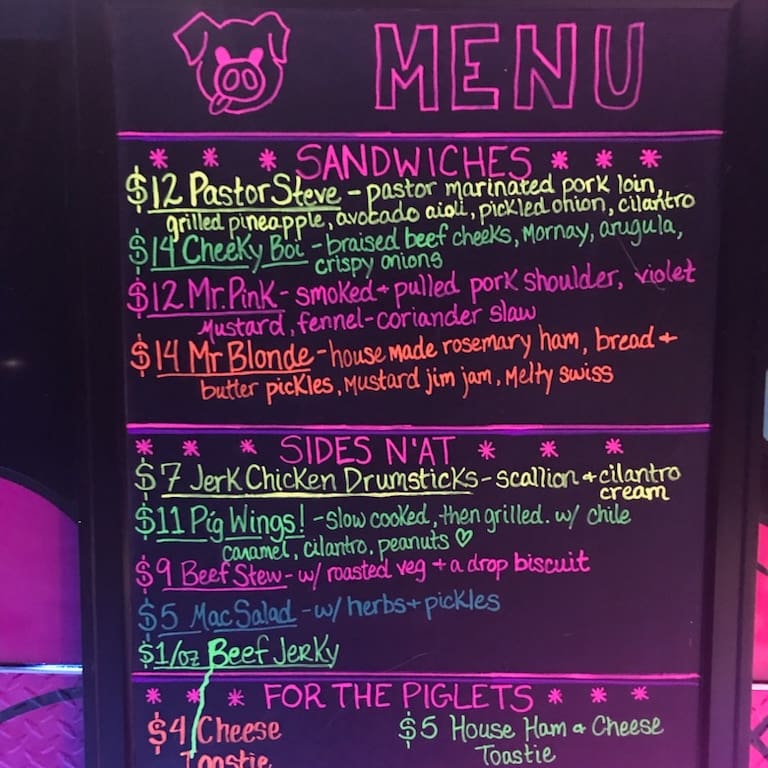 MENU
* * * SANDWICHES * * *
$12 Pastor Steve - pastor marinated pork loin,
grilled pineapple, avocado aioli, pickled onion, cilantro
$14 Cheeky Boi - braised beef cheeks, Mornay, arugula,
crispy onions
$12 Mr. Pink - smoked + pulled pork shoulder, violet
Mustard, fennel-coriander slaw
$14 Mr Blonde - house made rosemary ham, bread +
butter pickles, Mustard jim jam, Melty swiss
* * * SIDES N'AT * * *
$7 Jerk Chicken Drumsticks - scallion + cilantro
cream
$11 Pig Wings! - slow cooked, then grilled. w/ chile
caramel, cilantro, peanuts ♡
$9 Beef Stew - w/ roasted veg + a drop biscuit
$5 Mac Salad - w/ herbs + pickles
$1/oz Beef Jerky
* * * FOR THE PIGLETS * * *
$4 Cheese
Toastie
$5 House Ham & Cheese
Toastie